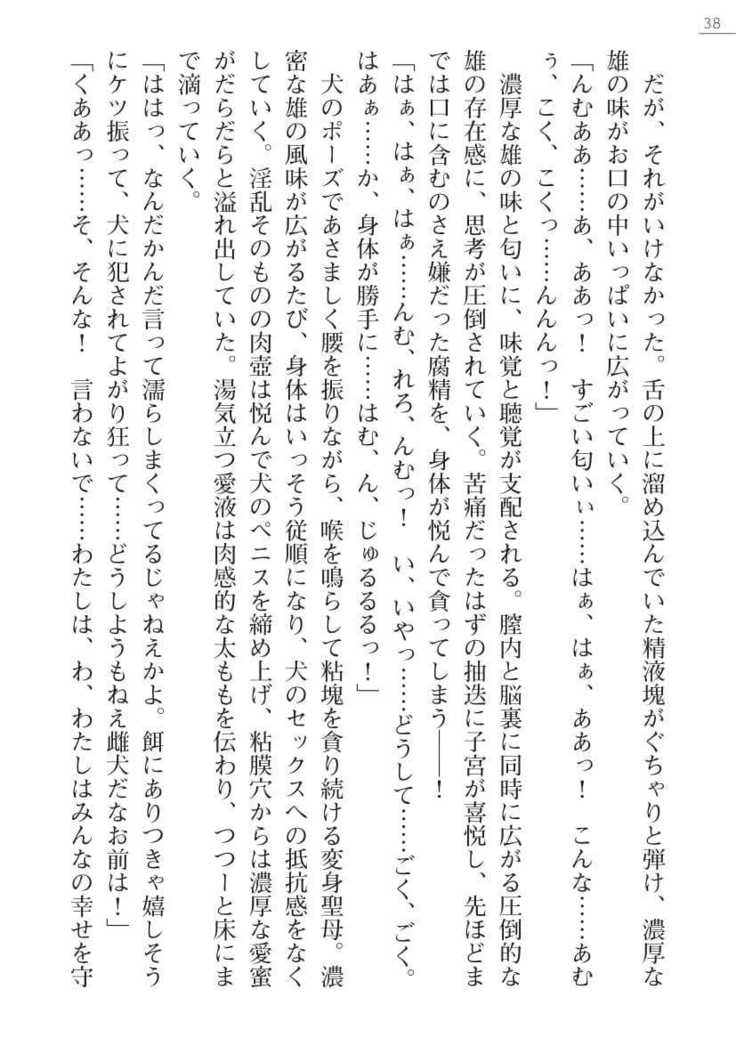 38
だが、それがいけなかった。舌の上に溜め込んでいた精液塊がぐちゃりと弾け、濃厚な
雄の味がお口の中いっぱいに広がっていく。
「んむああ……あ、ああっ！　すごい匂いぃ……はぁ、はぁ、ああっ！　こんな……あむ
ぅ、こく、こくっ……んんんっ！」
濃厚な雄の味と匂いに、味覚と聴覚が支配される。膣内と脳裏に同時に広がる圧倒的な
雄の存在感に、思考が圧倒されていく。苦痛だったはずの抽迭に子宮が喜悦し、先ほどま
では口に含むのさえ嫌だった腐精を、身体が悦んで貪ってしまう――！
「はぁ、はぁ、はぁ……んむ、れろ、んむっ！　い、いやっ……どうして……ごく、ごく。
はあぁ……か、身体が勝手に……はむ、ん、じゅるるるっ！」
犬のポーズであさましく腰を振りながら、喉を鳴らして粘塊を貪り続ける変身聖母。濃
密な雄の風味が広がるたび、身体はいっそう従順になり、犬のセックスへの抵抗感をなく
していく。淫乱そのものの肉壺は悦んで犬のペニスを締め上げ、粘膜穴からは濃厚な愛蜜
がだらだらと溢れ出していた。湯気立つ愛液は肉感的な太ももを伝わり、つつーと床にま
で滴っていく。
「ははっ、なんだかんだ言って濡らしまくってるじゃねえかよ。餌にありつきゃ嬉しそう
にケツ振って、犬に犯されてよがり狂って……どうしようもねえ雌犬だなお前は！」
「くああっ……そ、そんな！　言わないで……わたしは、わ、わたしはみんなの幸せを守